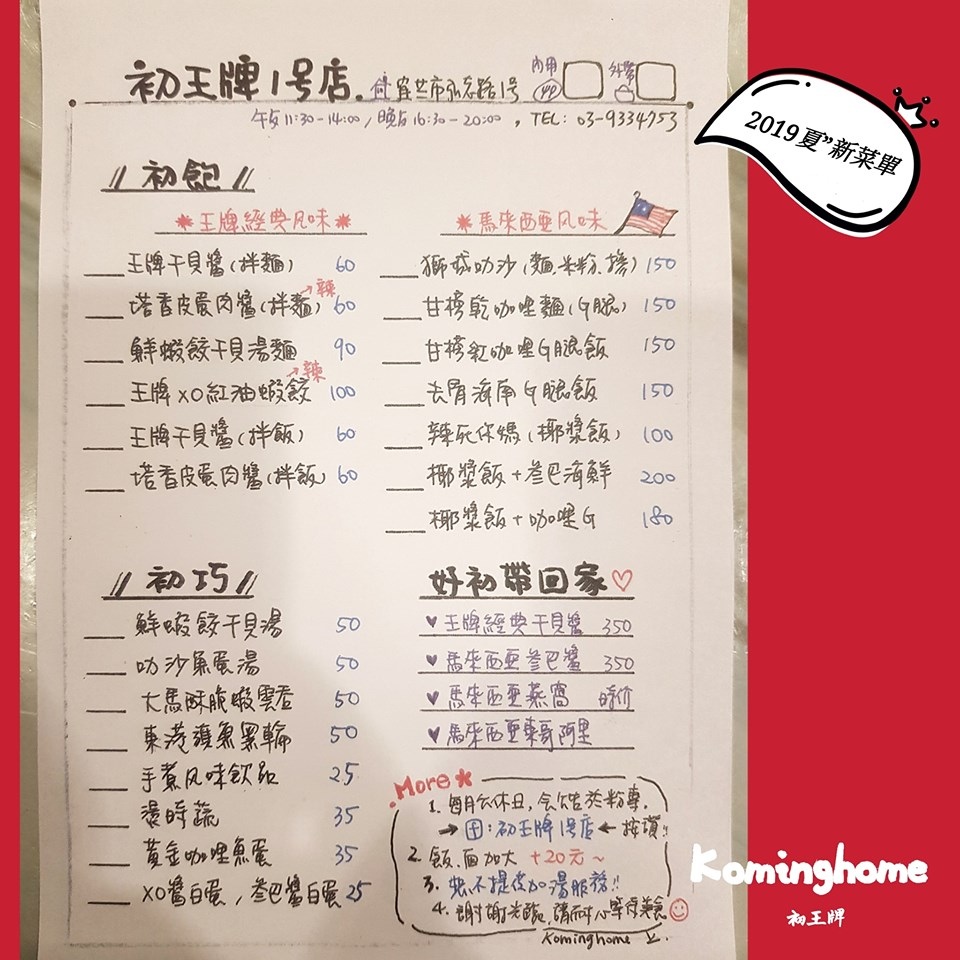 初王牌1号店.
宜兰市
路1号
內用
外帶
午后11:30-14:00/晚后16:30-20:00,TEL:03-9334753
2019夏"新菜單
初飽
王牌經典风味
王牌干貝醬(拌麵) 60
塔香皮蛋肉醬(拌麵)→辣 60
鮮蝦餃干貝湯麵 90
王牌XO紅油蝦餃→辣 100
王牌干貝醬(拌飯) 60
塔香皮蛋肉醬(拌飯) 60
馬來西亞风味
獅城叻沙(麵.米粉.擇) 150
甘榜乾咖哩麵(G腿) 150
甘榜紅咖哩G腿飯 150
去骨海南G腿飯 150
辣死你媽(椰漿飯) 100
椰漿飯+叁巴海鮮 200
椰漿飯+咖哩G 180
初巧
鮮蝦餃干貝湯 50
叻沙魚蛋湯 50
大馬酥脆蝦雲吞 50
東港旗魚黑輪 50
手煮风味飲品 25
燙時蔬 35
黃金咖哩魚蛋 35
XO醬白蛋,叁巴醬白蛋 25
好初帶回家♡
♥王牌經典干貝醬 350
♥馬來西亞叁巴醬 350
♥馬來西亞燕窩 時价
♥馬來西亞東哥阿里
More*
1.每月公休日,会公告於粉專.
→ :初王牌1号店←按讚!
2.飯.面加大 +20元~
3.恕不提供加湯服務!!
4.謝謝光臨,請耐心等待美食☺
Kominghome
Kominghome
初王牌